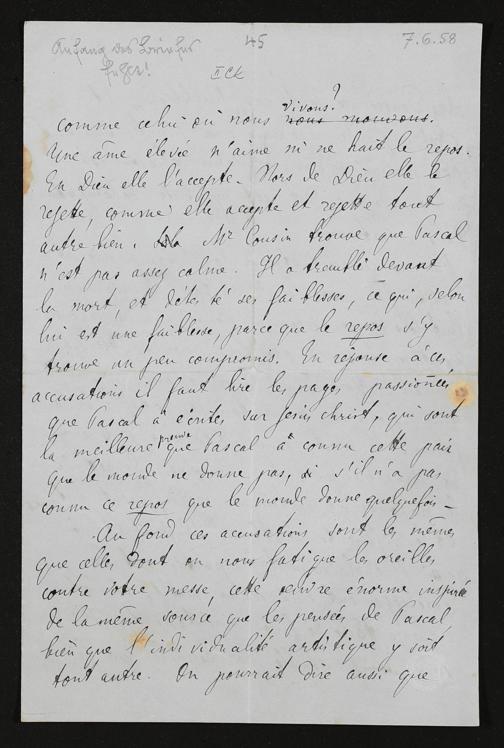 Anfang des Briefes
fehlt!
45
7.6.58
II Ck
vivons?
comme celui où nous nous mourons.
Une âme élevée n'aime ni ne hait le repos.
En Dieu elle l'accepte. Hors de Dieu elle le
rejette, comme elle accepte et rejette tout
autre bien. Mr Cousin trouve que Pascal
n'est pas assez calme. Il a tremblé devant
la mort, et détesté ses faiblesses, ce qui, selon
lui est une faiblesse, parce que le repos s'y
trouve un peu compromis. En réponse à ces
accusations il faut lire les pages passionnées
que Pascal a écrites sur Jésus Christ, qui sont
la meilleure preuve que Pascal a connu cette paix
que le monde ne donne pas, si s'il n'a pas
connu ce repos que le monde donne quelquefois –
Au fond ces accusations sont les mêmes
que celles dont on nous fatigue les oreilles
contre votre messe, cette œuvre énorme inspirée
de la même source que les pensées de Pascal,
bien que l'individualité artistique y soit
tout autre. On pourrait dire aussi que